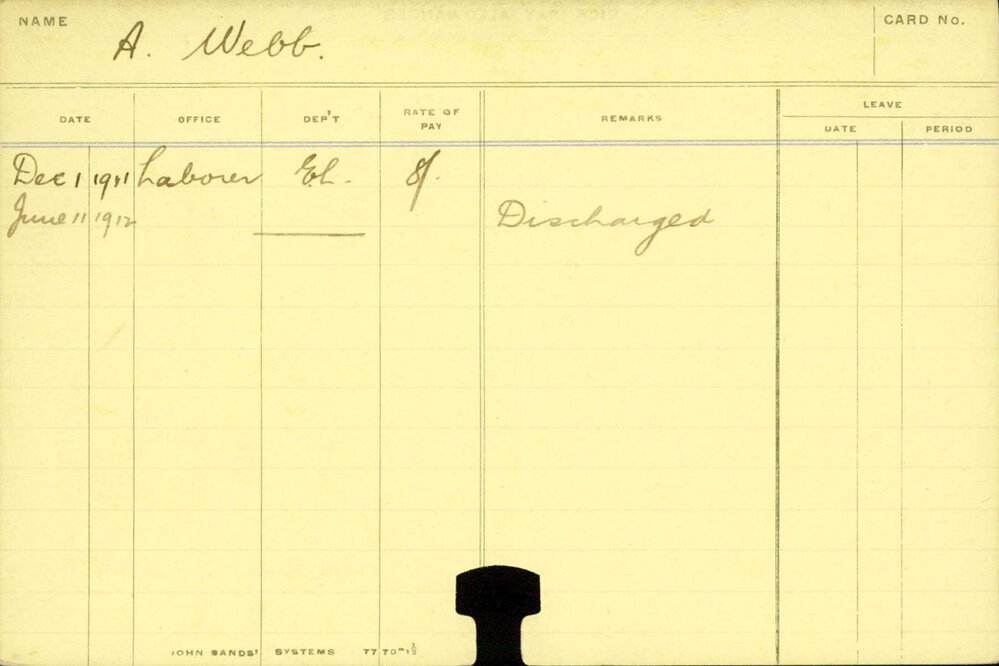 NAME A. Webb. CARD No.
DATE OFFICE DEP'T RATE OF PAY REMARKS LEAVE
DATE PERIOD
Dec 1 1911 Laborer E.L. 8/.
June 11 1912 Discharged
JOHN SANDS' SYSTEMS 7770-1½